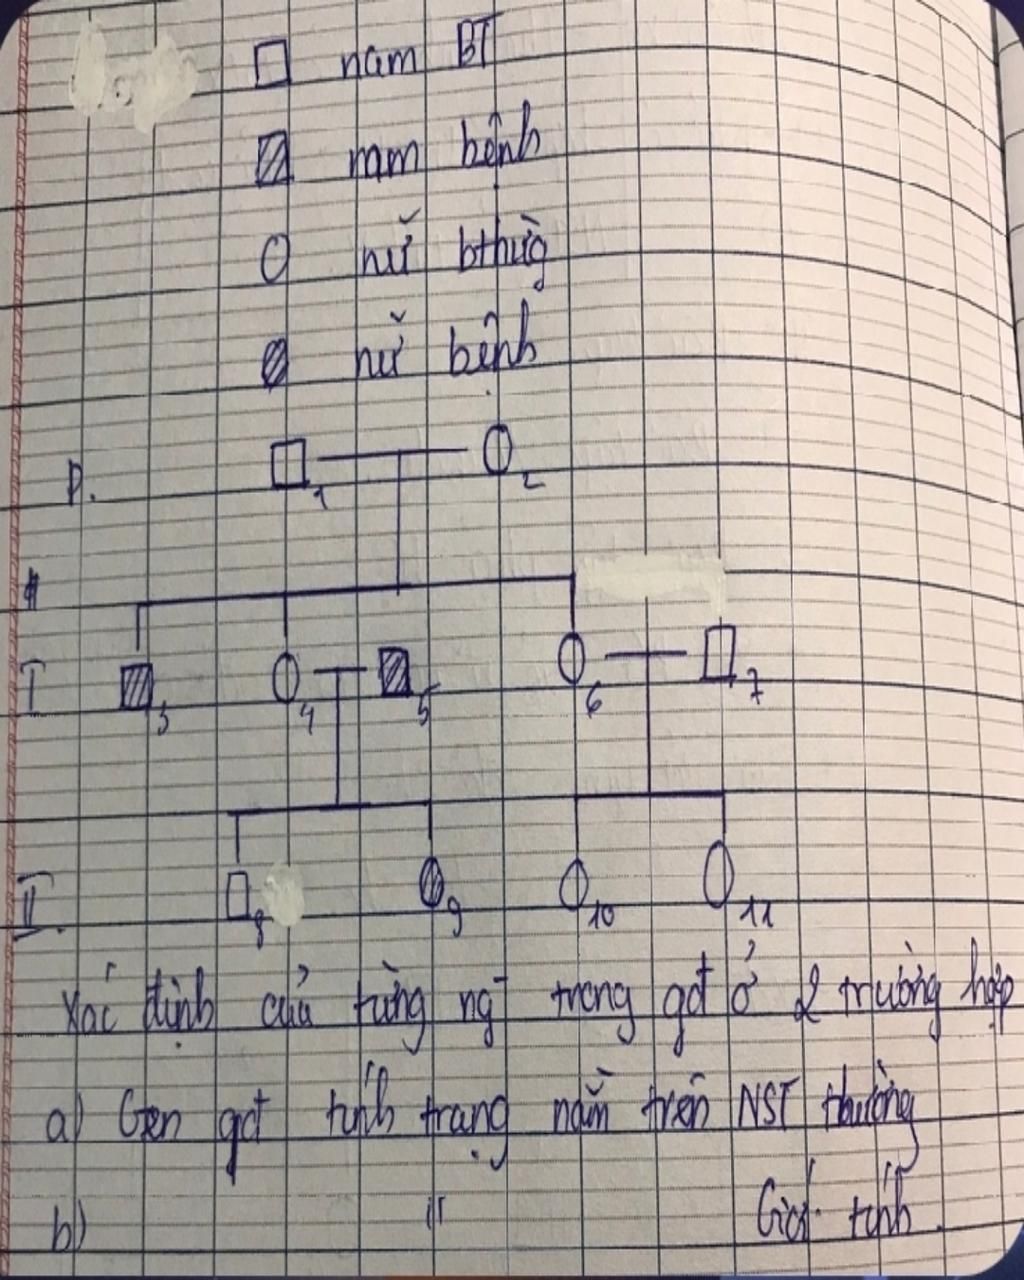 nam BT
nam bệnh
nữ bthừg
nữ bệnh
P.
1
2
I
3
4
5
6
7
II.
8
9
10
11
Xác định của từng ng trong gđ ở 2 trường hợp
a) Gen qđ tính trạng nằm trên NST thường
b) 11 Giới tính